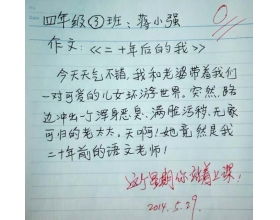 四年级③班：蒋小强
0
作文：《二十年后的我》
今天天气不错，我和老婆带着我们
一对可爱的儿女环游世界。突然，路
边冲出一个浑身恶臭、满脏污秽、无家
可归的老太太，天啊！她竟然是我
二十年前的语文老师！
这个星期你站着上课！
2014.5.29.